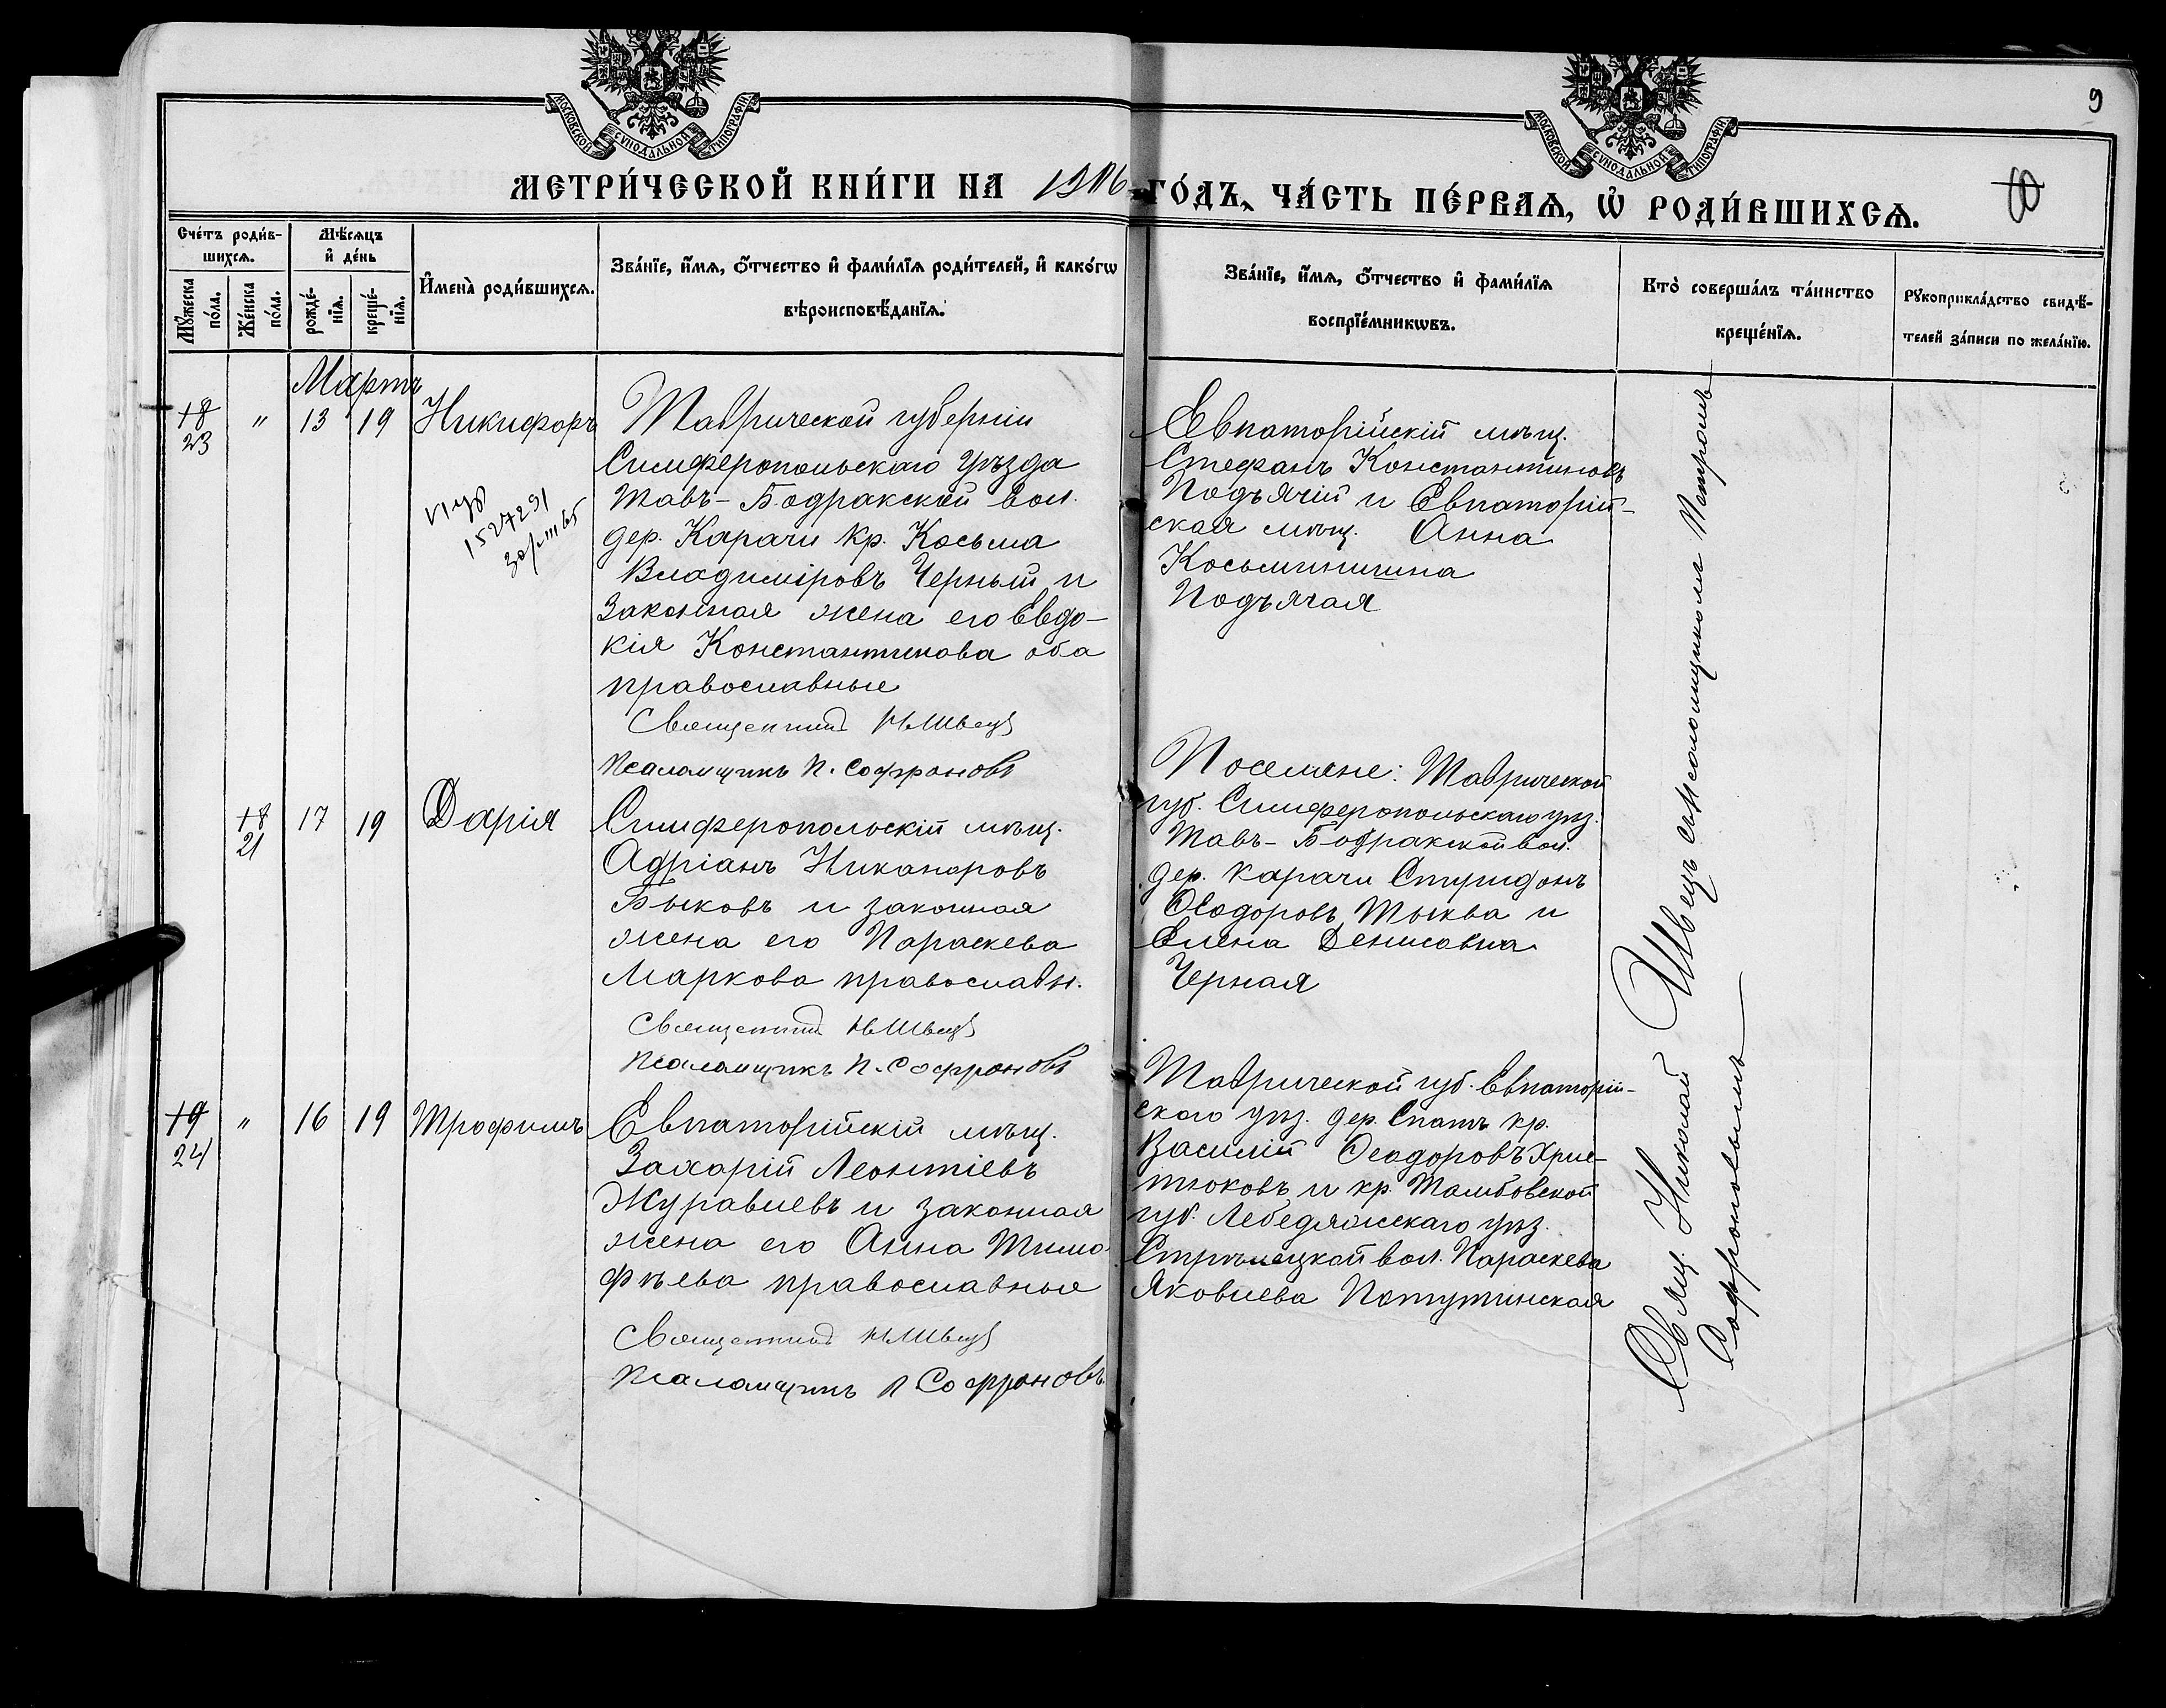 МОСКОВСКОЙ СУНОДАЛЬНОЙ ТИПОГРАФІИ.
МОСКОВСКОЙ СУНОДАЛЬНОЙ ТИПОГРАФІИ.
9
МЕТРИ́ЧЕСКОЙ КНИ́ГИ НА 1906 ГО́ДЪ, ЧА́СТЬ ПЕ́РВАЯ, Ѡ РОДИ́ВШИХСЯ.
Сче́тъ роди́в-
шихся.
Мѣ́сяцъ
и҆ де́нь
Му́жеска
по́ла.
Же́нска
по́ла.
рожде́-
нїя.
креще́-
нїя.
И҆мена̀ роди́вшихся.
Зва́нїе, и҆́мя, ѻ҆́тчество и҆ фами́лїя роди́телей, и҆ како́гѡ
вѣроисповѣ́данїя.
Зва́нїе, и҆́мя, ѻ҆́тчество и҆ фами́лїя
воспрїе́мникѡвъ.
Кто̀ соверша́лъ та́инство
креще́нїя.
Рꙋкоприкла́дство свидѣ́-
телей за́писи по жела́нїю.
Мартъ
18
23
"
13
19
Никифоръ
1527291
Таврической губерніи
Симферопольскаго уѣзда
Тавъ-Бодракской вол.
дер. Карачи кр. Косьма
Владиміровъ Черный и
законная жена его Евдо-
кія Константинова оба
православные
Священникъ Н. Швецъ
Псаломщикъ П. Софроновъ
Евпаторійскій мѣщ.
Стефанъ Константиновъ
Подъячій и Евпаторій-
ская мѣщ. Анна
Косьминишна
Подъячая
18
21
17
19
Дарія
Симферопольскій мѣщ.
Адріанъ Никаноровъ
Быковъ и законная
жена его Параскева
Маркова православн.
Священникъ Н. Швецъ
Псаломщикъ П. Софроновъ
Поселяне: Таврической
губ. Симферопольскаго уѣз.
Тавъ-Бодракской вол.
дер. Карачи Спиридонъ
Ѳеодоровъ Тыква и
Елена Денисовна
Черная
19
24
"
16
19
Трофимъ
Евпаторійскій мѣщ.
Захарій Леонтіевъ
Журавлевъ и законная
жена его Анна Тимо
фѣева православные
Священникъ Н. Швецъ
Псаломщикъ П Софроновъ
Таврической губ. Евпаторій-
скаго уѣз. дер. Спатъ кр.
Василій Ѳеодоровъ Хрис-
тюковъ и кр. Тамбовской
губ. Лебедянскаго уѣз.
Стрѣлецкой вол. Параскева
Яковлева
Свящ. Николай Швецъ съ псаломщикомъ Петромъ
Софроновымъ